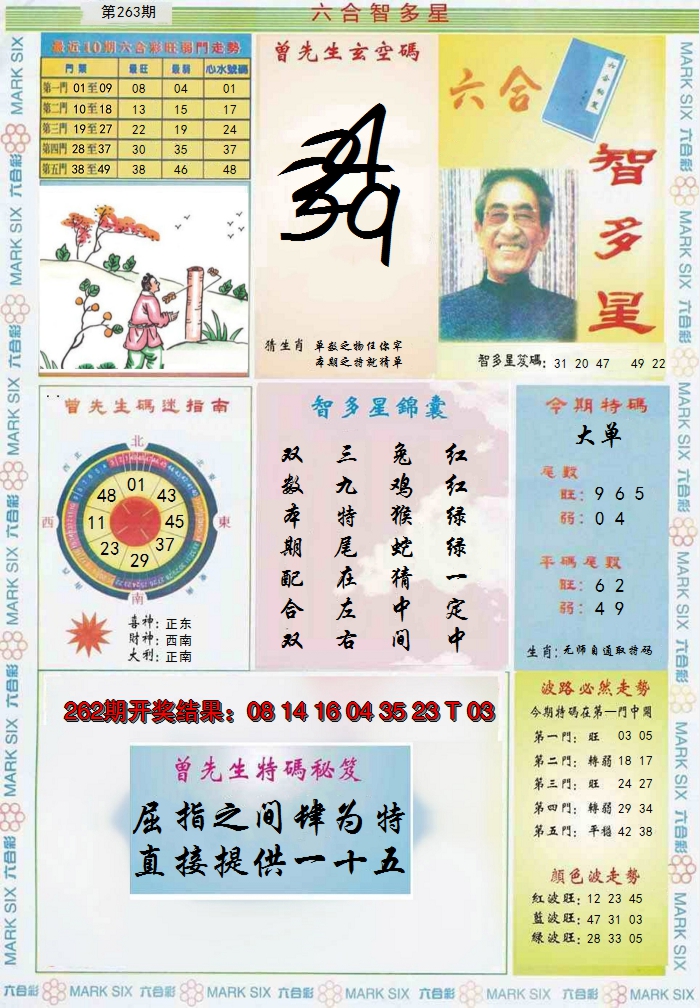 第263期
六合智多星
最近10期六合彩旺弱門走勢
門類 最旺 最弱 心水號碼
第一門 01至09 08 04 01
第二門 10至18 13 15 17
第三門 19至27 22 19 24
第四門 28至37 30 35 37
第五門 38至49 38 46 48
曾先生玄空碼
猜生肖 单数之物任你宰
本期之特就猜单
六合
智多星
智多星笈碼: 31 20 47 49 22
曾先生碼迷指南
北
西北
東北
西
東
西南
東南
南
01
48 43
11 45
23 37
29
喜神: 正东
財神: 西南
大利: 正南
智多星錦囊
双 三 兔 红
数 九 鸡 红
本 特 猴 绿
期 尾 蛇 绿
配 在 猜 一
合 左 中 定
双 右 间 中
今期特碼
大单
尾數
旺: 9 6 5
弱: 0 4
平碼尾數
旺: 6 2
弱: 4 9
生肖: 无师自通取特码
262期开奖结果: 08 14 16 04 35 23 T 03
曾先生特碼秘笈
屈指之间肆为特
直接提供一十五
波路必然走勢
今期特碼在第一門中開
第一門: 旺 03 05
第二門: 轉弱 18 17
第三門: 旺 24 27
第四門: 轉弱 29 34
第五門: 平穩 42 38
顏色波走勢
紅波旺: 12 23 45
藍波旺: 47 31 03
綠波旺: 28 33 05
MARK SIX 六合彩